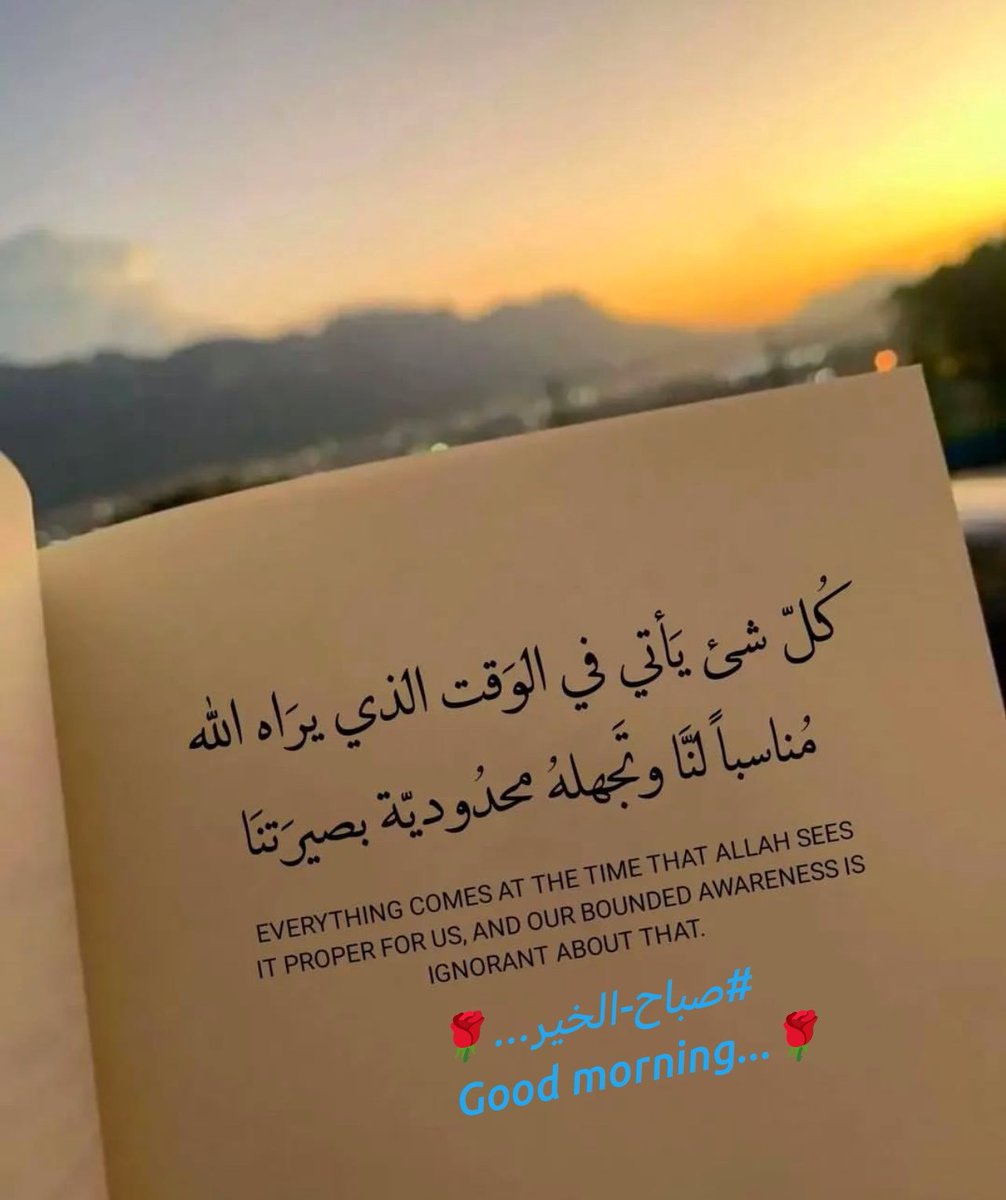 كُلّ شئ يَأتي في الوَقت الذي يرَاه الله
مُناسباً لنَّا وتَجهلهُ محدُوديّة بصيرَتنَا
EVERYTHING COMES AT THE TIME THAT ALLAH SEES
IT PROPER FOR US, AND OUR BOUNDED AWARENESS IS
IGNORANT ABOUT THAT.
#صباح-الخير...🌹
Good morning...🌹